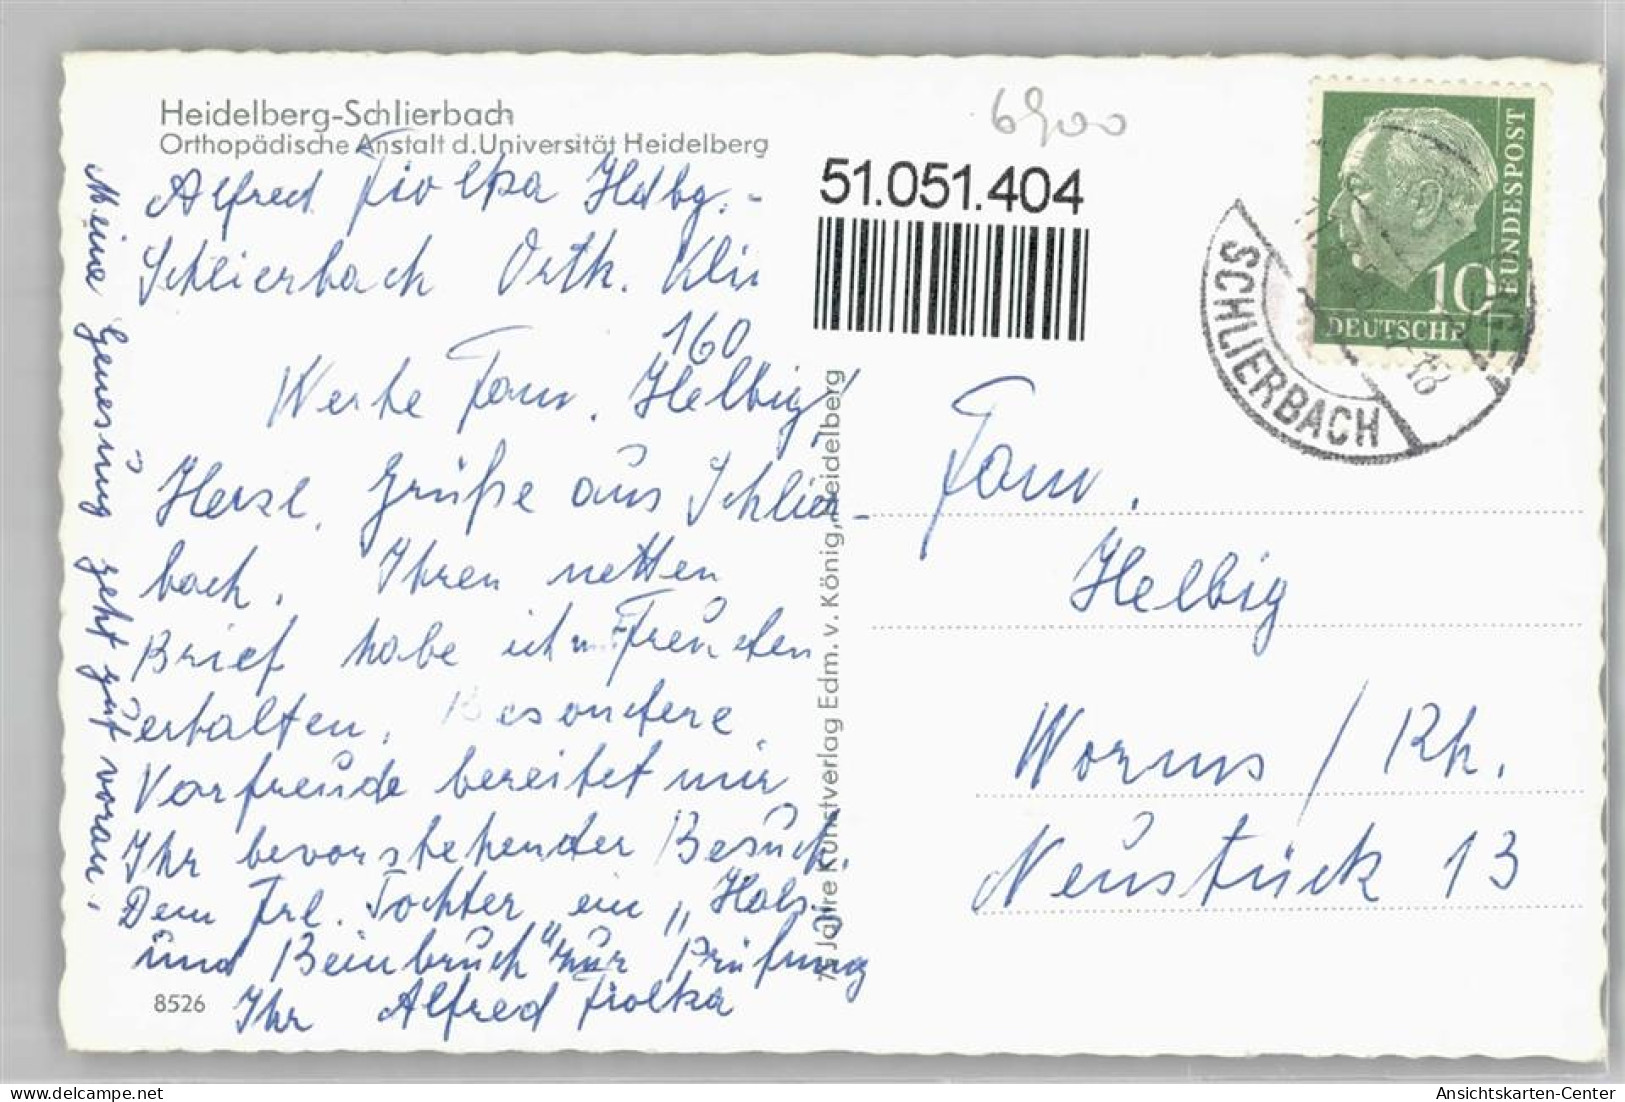 Heidelberg-Schlierbach
Orthopädische Anstalt d. Universität Heidelberg
Alfred Fiolka Hdbg.-
Schlierbach Orth. Klin
160
Werte Fam. Helbig!
Herzl. Grüße aus Schlier-
bach. Ihren netten
Brief habe ich m. Freuden
erhalten. Besondere
Vorfreude bereitet mir
Ihr bevorstehender Besuch.
Dem Frl. Tochter ein „Hals-
und Beinbruch" zur Prüfung
Ihr Alfred Fiolka
Meine Genesung geht gut voran.
8526
Jahre Kunstverlag Edm. v. König, Heidelberg
6900
51.051.404
DEUTSCHE BUNDESPOST
10
SCHLIERBACH
-18
Fam.
Helbig
Worms / Rh.
Neustück 13
Ansichtskarten-Center.de
Ansichtskarten-Center